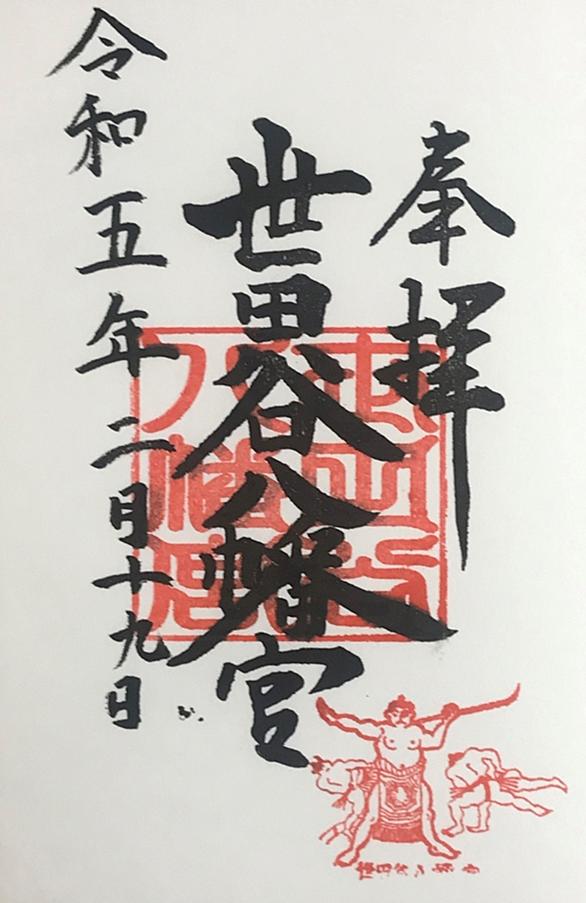 奉拝
世田谷八幡宮
令和五年二月十九日